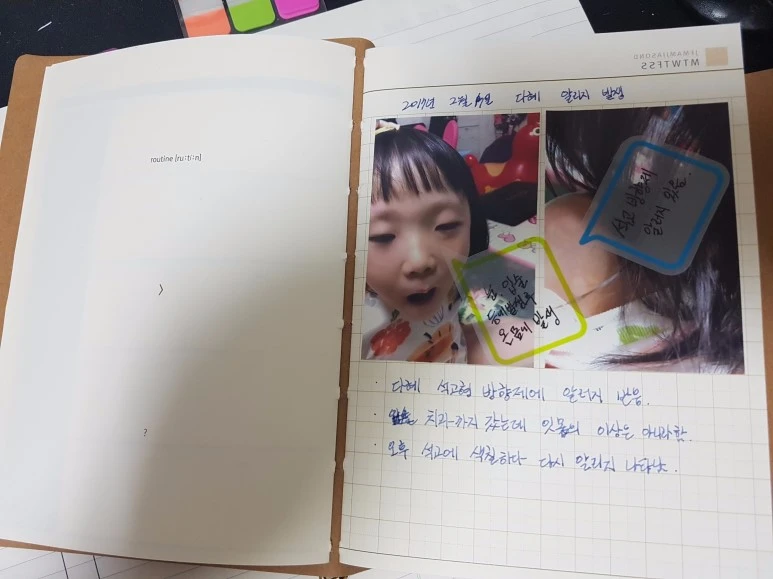 routine [ru:ti:n]
>
?
JFMAMJJASOND
MTWTFSS
2017년 2월 19일 다혜 알러지 발생
석고 방향제
알러지 있음.
눈 입술
온몸에 발생
· 다혜 석고형 방향제에 알러지 반응.
· 치과까지 갔는데 잇몸의 이상은 아니라함.
· 오후 석고에 색칠하다 다시 알러지 나타남.